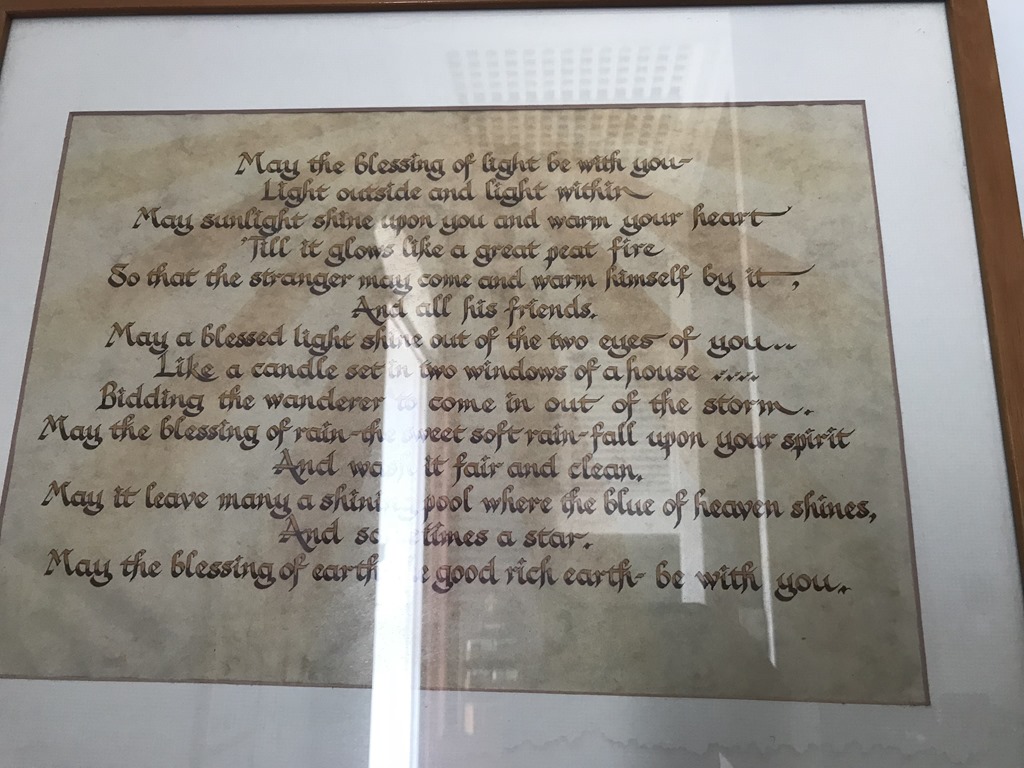 May the blessing of light be with you-
Light outside and light within
May sunlight shine upon you and warm your heart
'Till it glows like a great peat fire
So that the stranger may come and warm himself by it,
And all his friends.
May a blessed light shine out of the two eyes of you...
Like a candle set in two windows of a house .....
Bidding the wanderer to come in out of the storm.
May the blessing of rain-the sweet soft rain-fall upon your spirit
And wash it fair and clean.
May it leave many a shining pool where the blue of heaven shines,
And sometimes a star.
May the blessing of earth good rich earth- be with you.